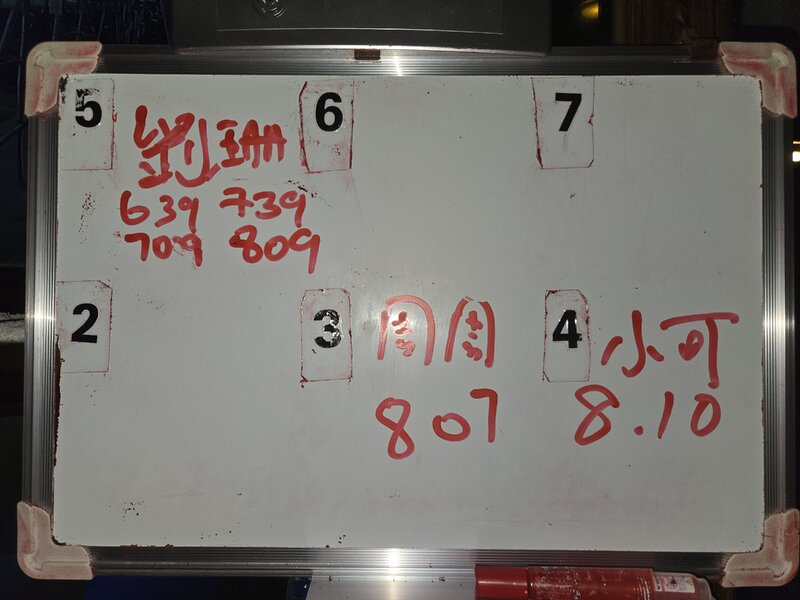 5
刘珊
639 739
709 809
6
7
2
3
周周
807
4
小可
8.10